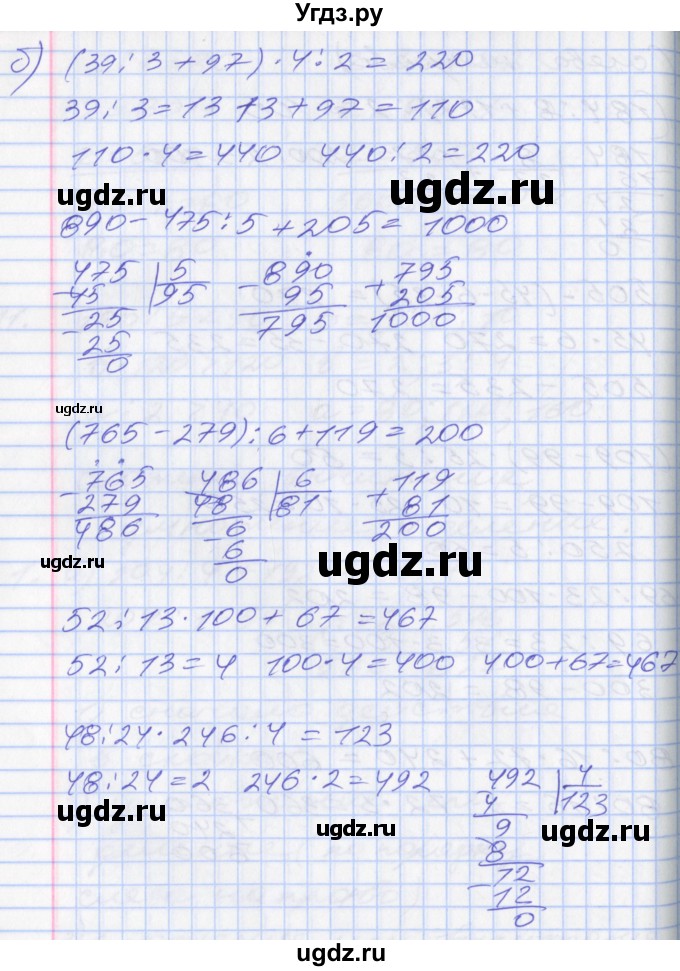 Угдз.ру
б) (39 : 3 + 97) · 4 : 2 = 220
39 : 3 = 13 13 + 97 = 110
110 · 4 = 440 440 : 2 = 220
ugdz.ru ugdz.ru
890 - 475 : 5 + 205 = 1000
475 | 5 - 890 + 795
- 45 95 95 205
- 25 795 1000
25
0
ugdz.ru
(765 - 279) : 6 + 119 = 200
- 765 486 | 6 + 119
279 48 81 81
486 - 6 200
6
0
ugdz.ru ugdz.ru ugdz.ru
52 : 13 · 100 + 67 = 467
52 : 13 = 4 100 · 4 = 400 400 + 67 = 467
48 : 24 · 246 : 4 = 123
48 : 24 = 2 246 · 2 = 492 492 | 4
4 123
9
8
- 12
12
0
ugdz.ru ugdz.ru ugdz.ru
ugdz.ru